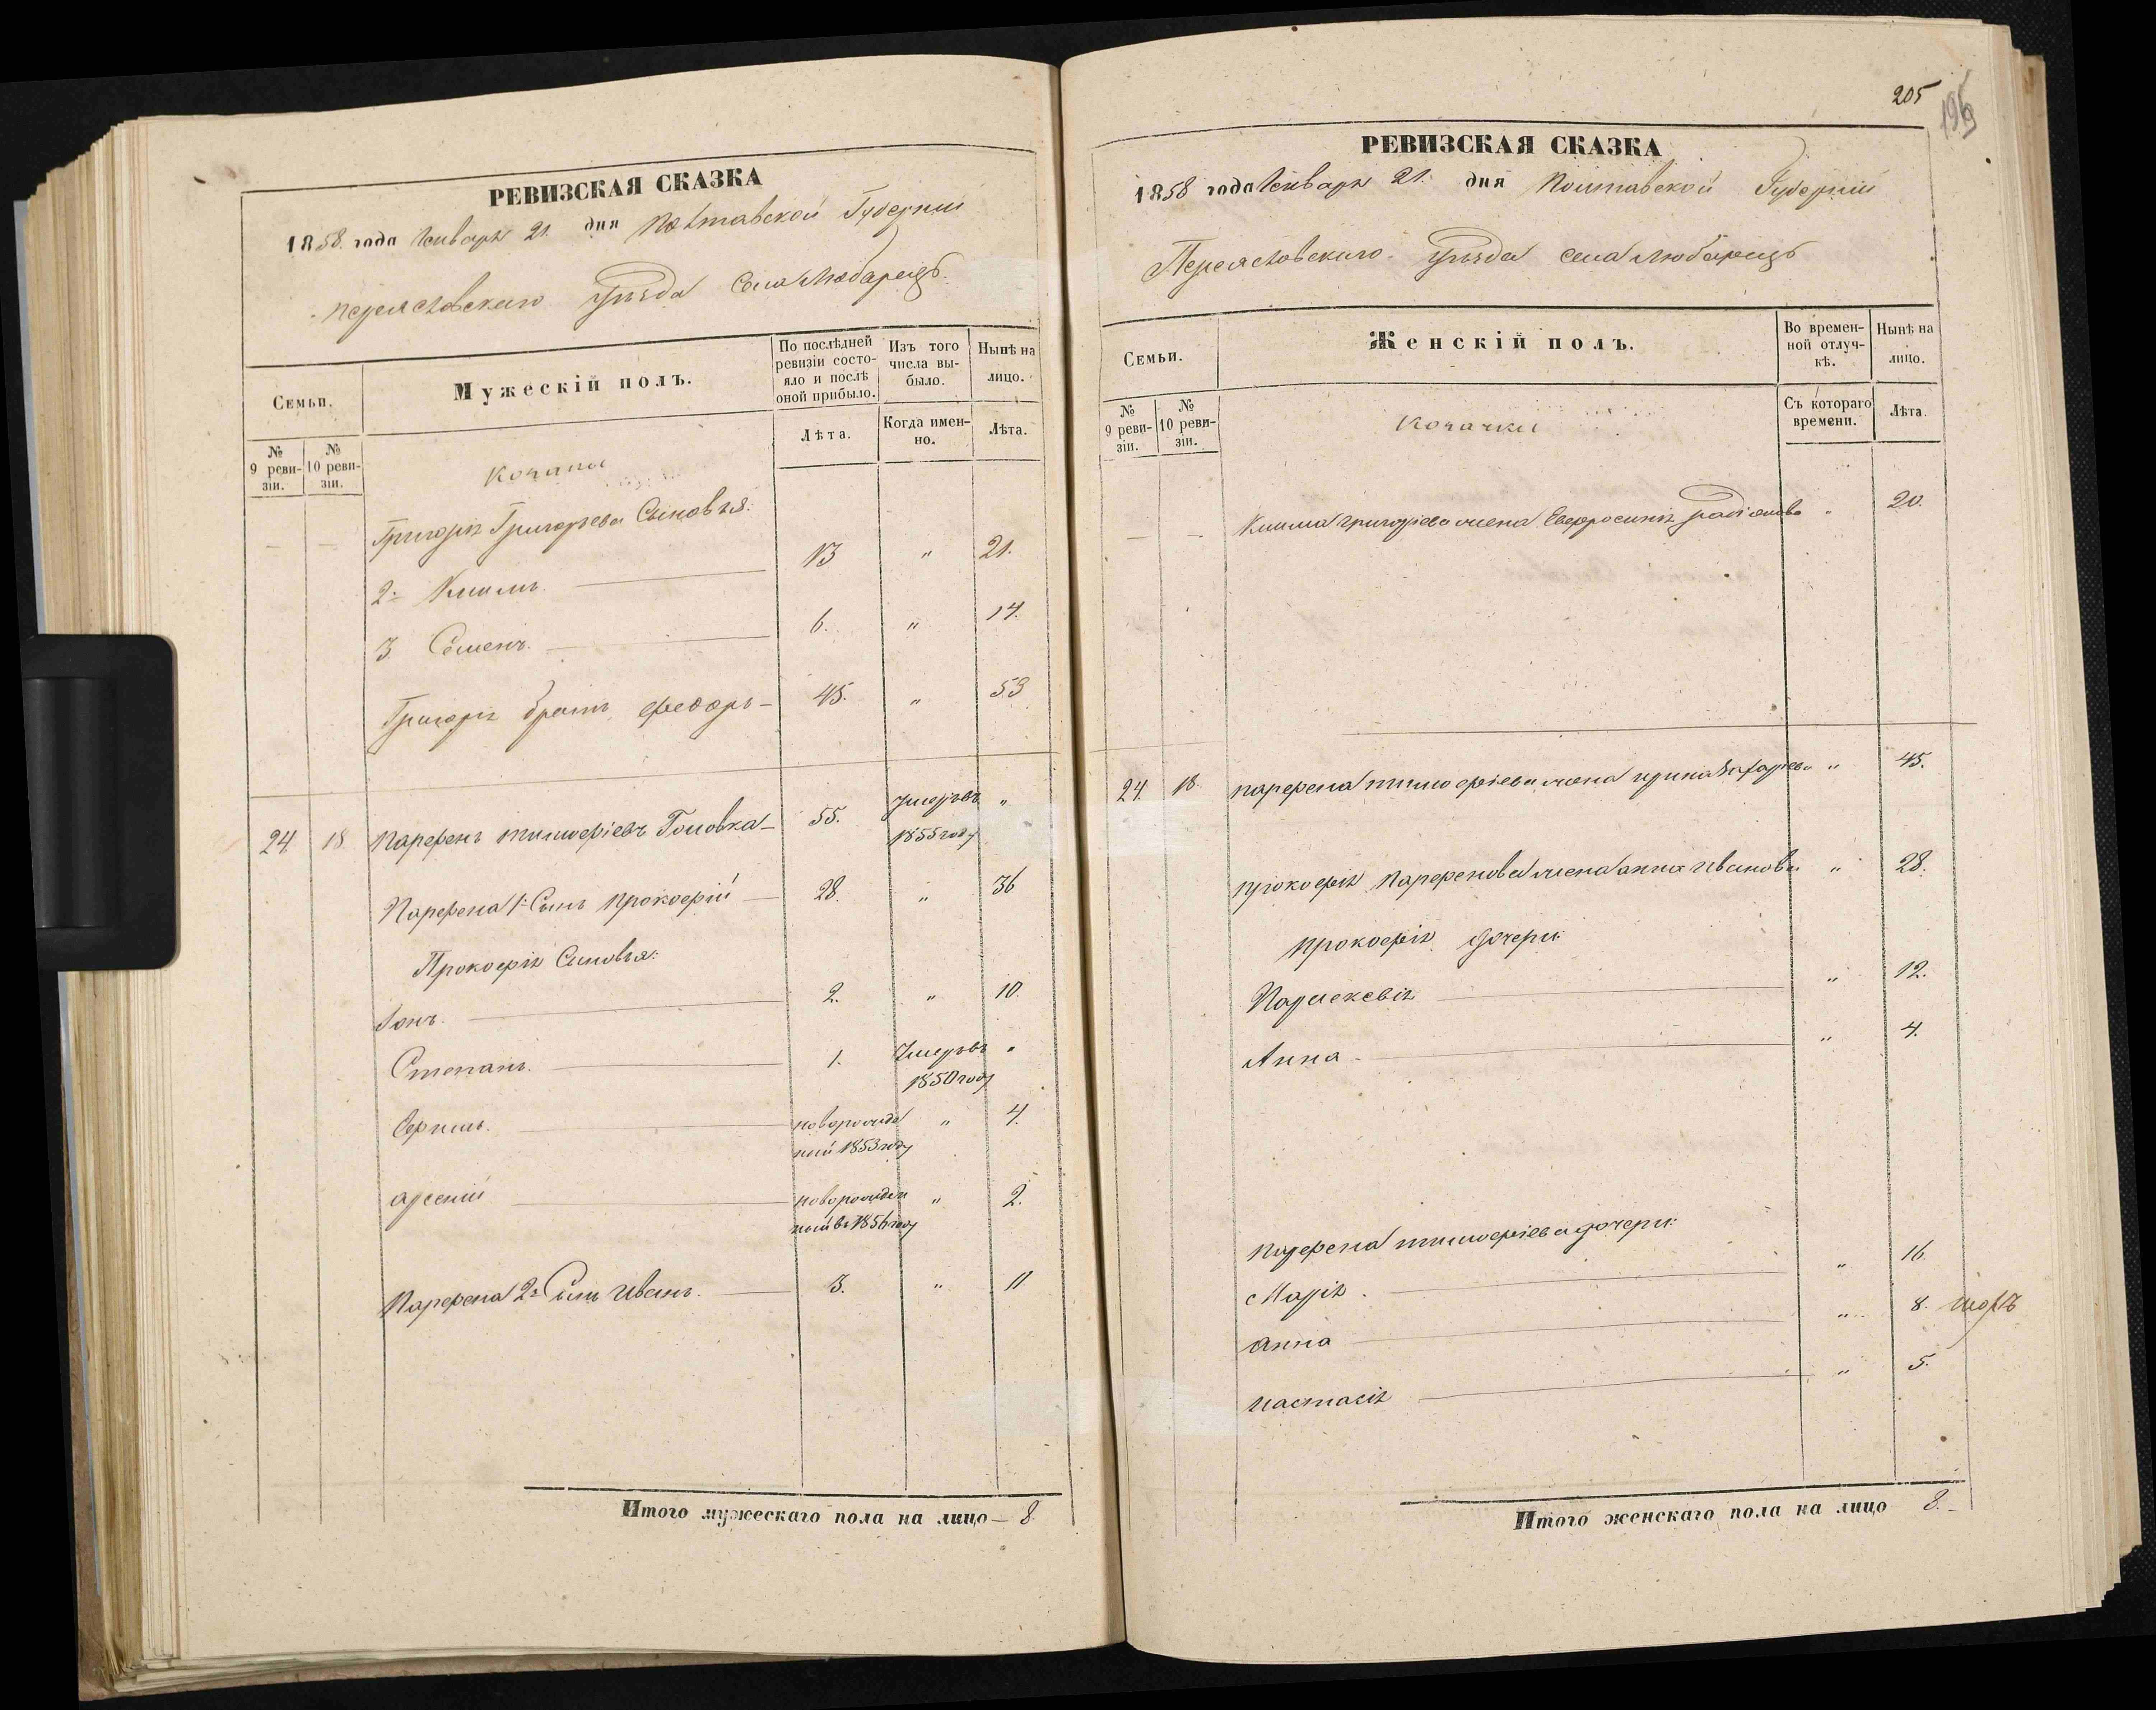 РЕВИЗСКАЯ СКАЗКА
1858 года Генваря 21. дня Полтавской Губернии
Переяславскаго Уезда Села Любарецъ
Семьи.
Мужескій полъ.
По послѣдней ревизіи состояло и послѣ оной прибыло.
Изъ того числа выбыло.
Нынѣ на лицо.
№ 9 ревизіи.
№ 10 ревизіи.
Козаки
Лѣта.
Когда именно.
Лѣта.
Григорія Григорьева Сыновья:
2й Климъ 13 " 21.
3 Семенъ. 6. " 14.
Григорія братъ Федоръ 45. " 53
24 18 Парфенъ Тимофіевъ Головка 55. Умеръ въ "
1855 году
Парфена 1й Сынъ Прокофій 28. " 36
Прокофія Сыновья:
Іонъ. 2. " 10.
Степанъ. 1. Умеръ въ "
1850 году
новорожде " 4.
ный 1853 году
Арсеній новорожден " 2.
ный въ 1856 году
Парфена 2й Сынъ Иванъ. 3. " 11
Итого мужескаго пола на лицо 8.
205
РЕВИЗСКАЯ СКАЗКА
1858 года Генваря 21. дня Полтавской Губерніи
Переяславскаго Уезда села Любарецъ
Семьи.
Женскій полъ.
Во временной отлучкѣ.
Нынѣ на лицо.
№ 9 ревизіи.
№ 10 ревизіи.
Козачки
Съ котораго времени.
Лѣта.
Клима Григоріева жена Евфросинія Радіонова " 20.
24. 18. Парфена Тимофіева жена Ирина Захаріева " 45.
Прокофія Парфенова жена Анна Иванова " 28.
Прокофія дочери:
Параскевія " 12.
Анна " 4.
Парфена Тимофіева дочери:
Марія " 16.
Анна " 8.
Настасія " 5.
Итого женскаго пола на лицо 8.